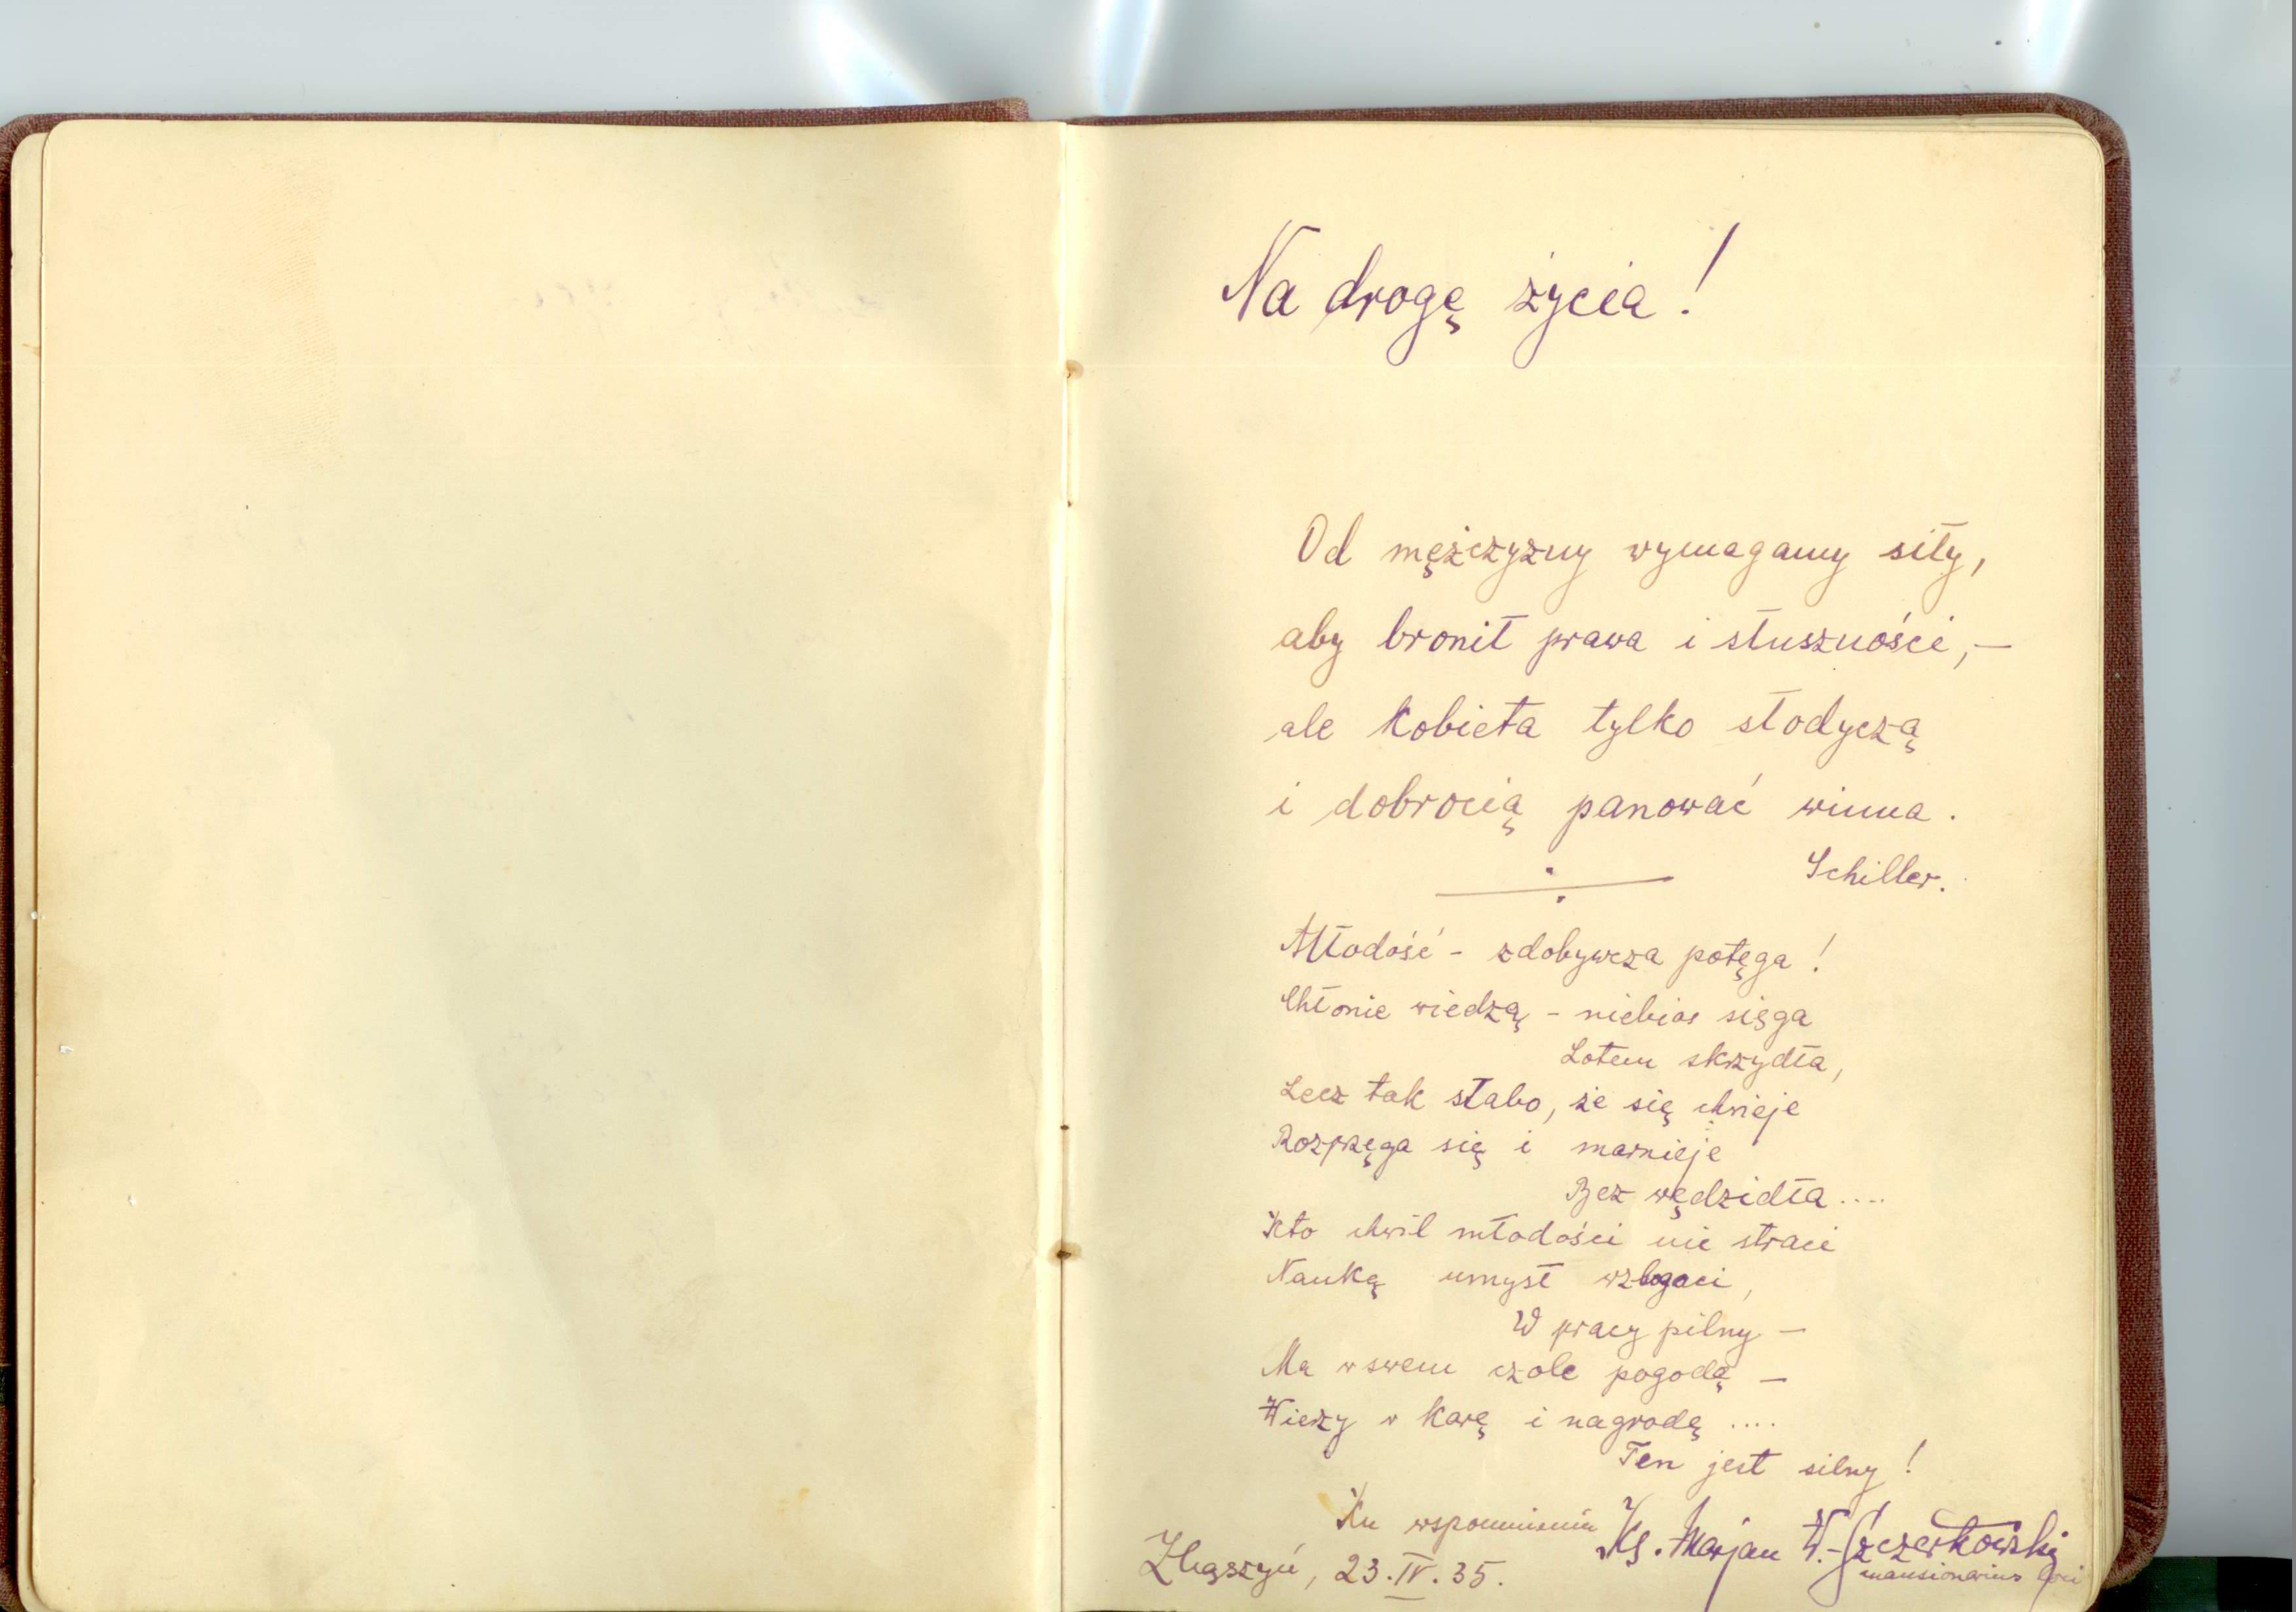 Na drogę życia!
Od mężczyzny wymagamy siły,
aby bronił prawa i słuszności, –
ale kobieta tylko słodyczą
i dobrocią panować winna.
Schiller.
Młodość - zdobywcza potęga!
Chłonie wiedzą - niebios sięga
Lotem skrzydła,
Lecz tak słabo, że się chwieje
Rozpręga się i marnieje
Bez wędzidła....
Kto chwil młodości nie straci
Nauką umysł wzbogaci,
W pracy pilny –
Ma w swem czole pogodą –
Wierzy w karę i nagrodę ....
Ten jest silny!
Ku wspomnieniu Ks. Marjan W.-Szczerkowski
mansionarius loci
Zbąszyń, 23.IV.35.